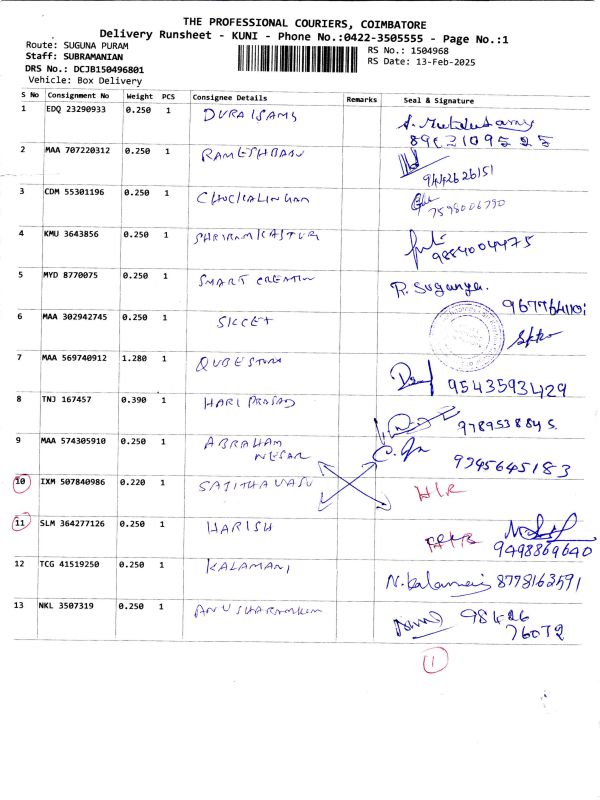 THE PROFESSIONAL COURIERS, COIMBATORE
Delivery Runsheet - KUNI - Phone No.:0422-3505555 - Page No.:1
Route: SUGUNA PURAM
RS No.: 1504968
Staff: SUBRAMANIAN
RS Date: 13-Feb-2025
DRS No.: DCJB150496801
Vehicle: Box Delivery
S No Consignment No Weight PCS Consignee Details Remarks Seal & Signature
1 EDQ 23290933 0.250 1 DURAISAMY
2 MAA 707220312 0.250 1 RAMESHBABU
9442626151
3 CDM 55301196 0.250 1 CHOCKALINGAM
7598006790
4 KMU 3643856 0.250 1 SHRIRAMKASTUR
9884004475
5 MYD 8770075 0.250 1 SMART CREATION R. Suganya.
6 MAA 302942745 0.250 1
7 MAA 569740912 1.280 1
9543593429
8 TNJ 167457 0.390 1 HARI PRASAD
9789538845.
9 MAA 574305910 0.250 1 ABRAHAM
NESAR
9345645183
10 IXM 507840986 0.220 1 SAJITHA VASU
11 SLM 364277126 0.250 1 HARISH
9498869640
12 TCG 41519250 0.250 1 KALAMANI
N. Kalamani 8778163591
13 NKL 3507319 0.250 1
98426
76072
1